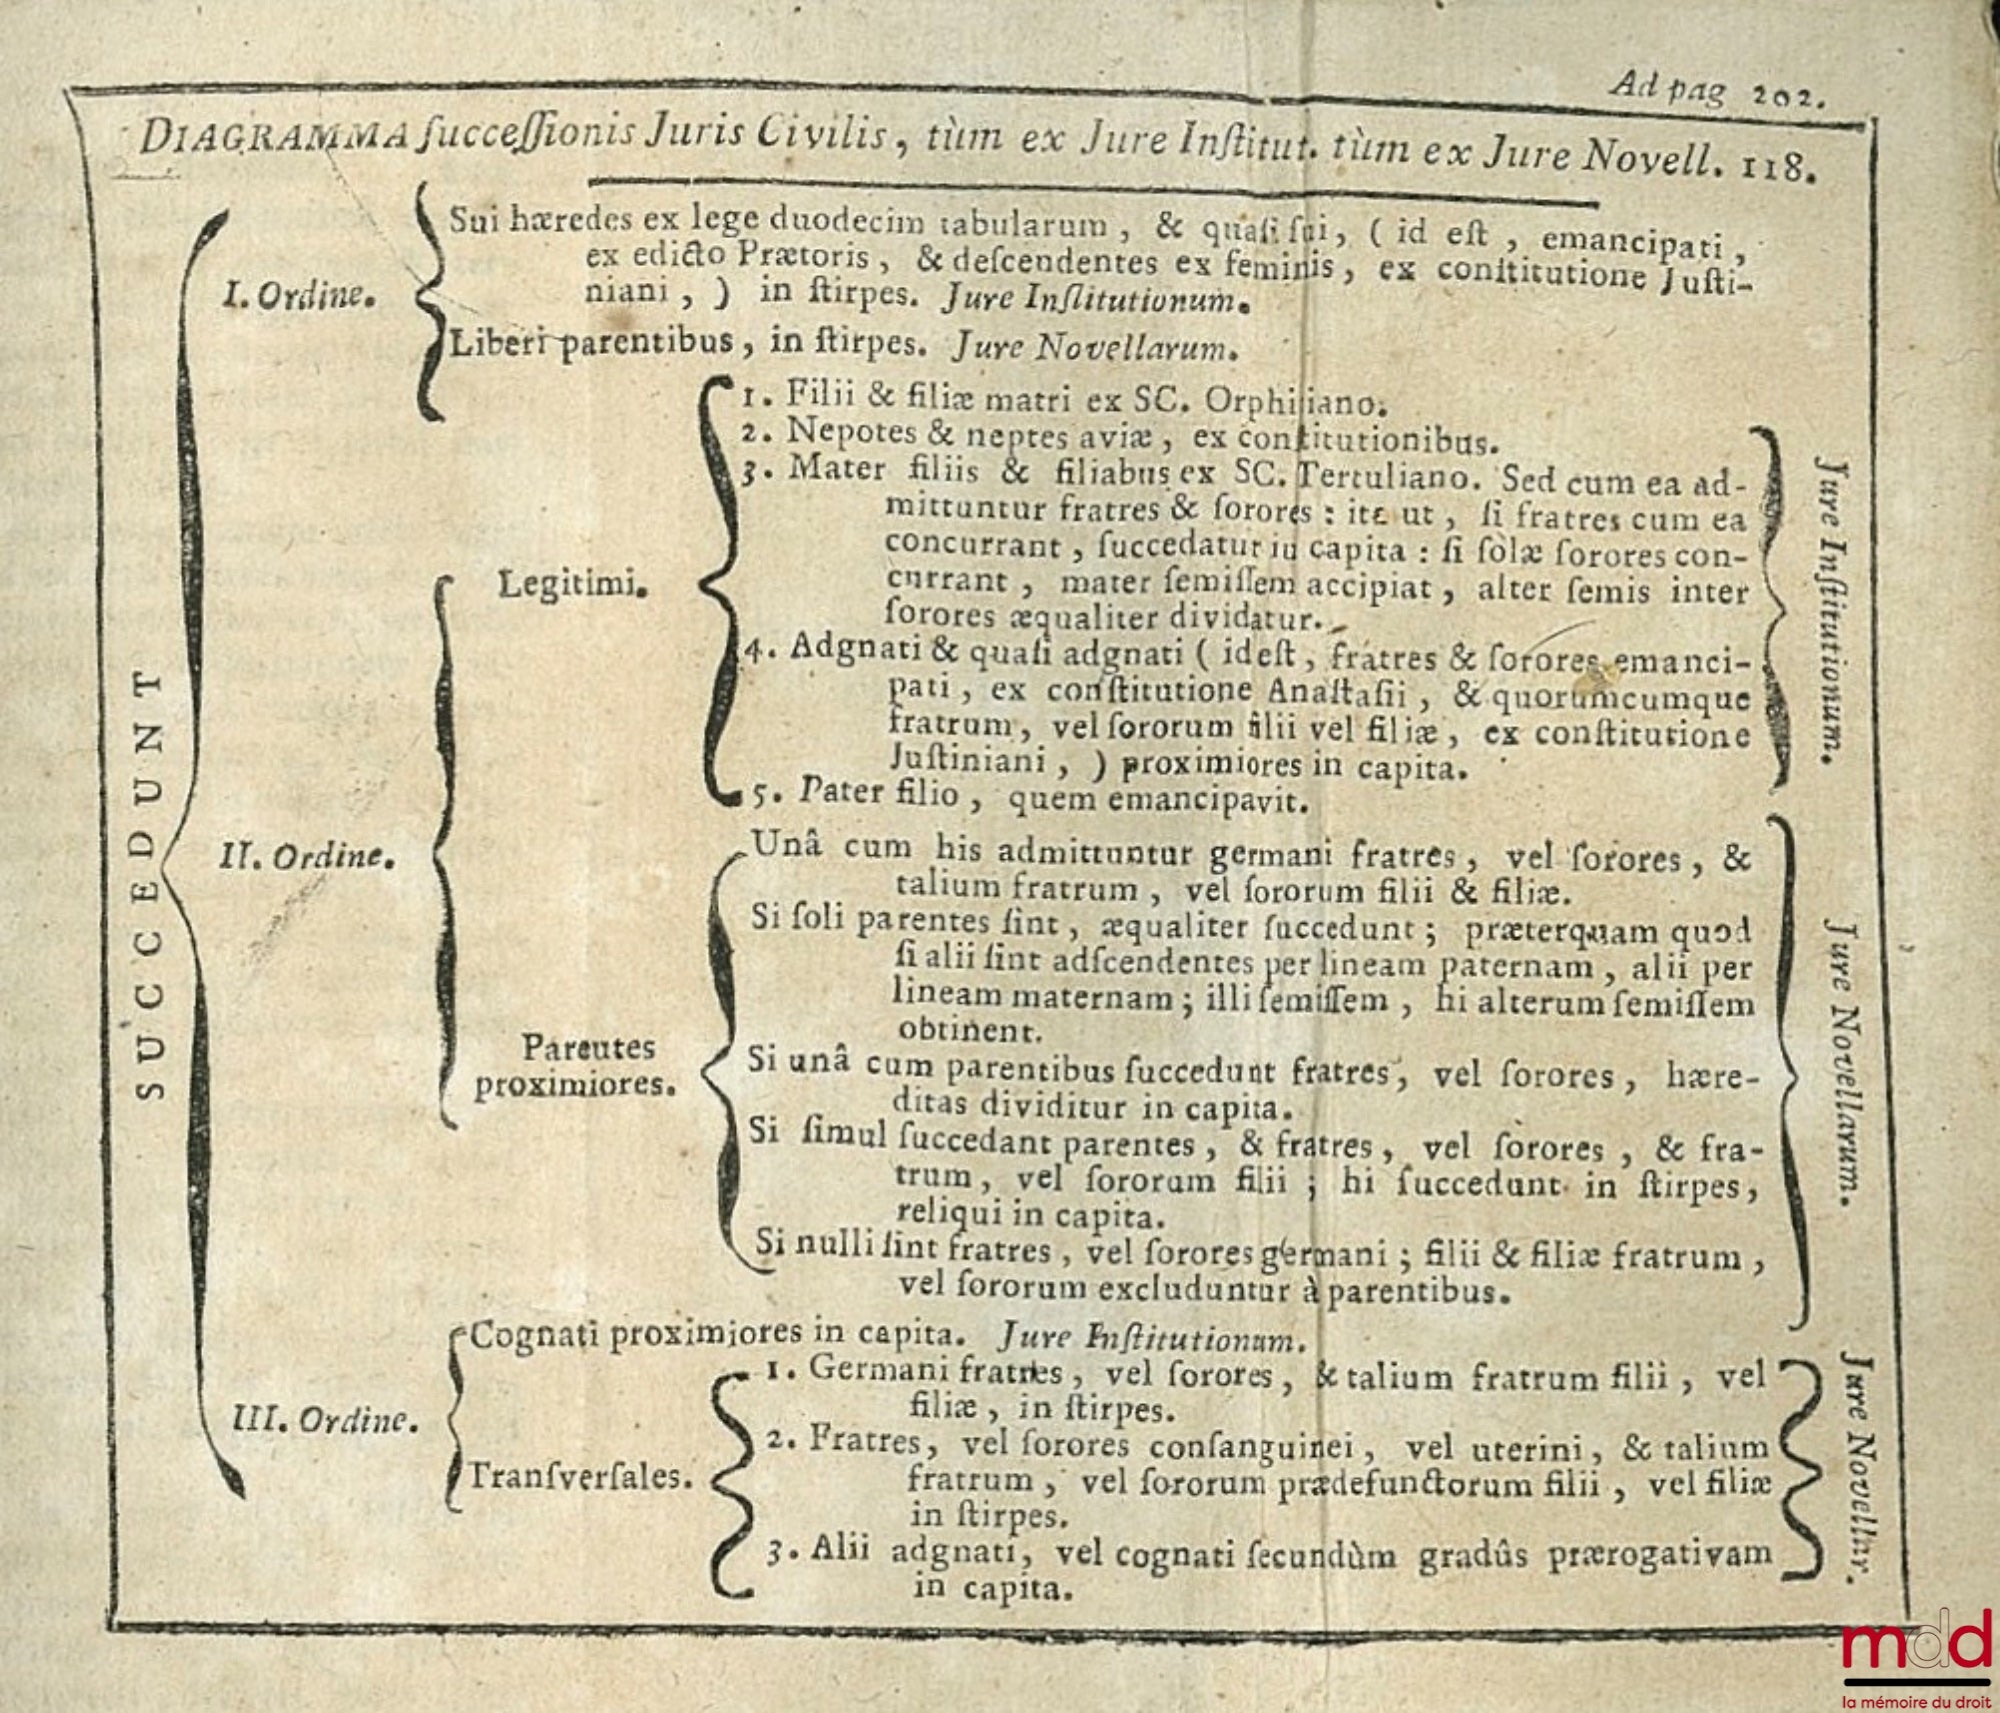 Ad pag 202.
DIAGRAMMA ſucceſſionis Juris Civilis, tùm ex Jure Inſtitut. tùm ex Jure Novell. 118.
SUCCEDUNT
I. Ordine.
Sui hæredes ex lege duodecim tabularum, & quaſi ſui, (id eſt, emancipati,
ex edicto Prætoris, & deſcendentes ex feminis, ex conſtitutione Juſti-
niani,) in ſtirpes. Jure Inſtitutionum.
Liberi parentibus, in ſtirpes. Jure Novellarum.
II. Ordine.
Legitimi.
1. Filii & filiæ matri ex SC. Orphitiano.
2. Nepotes & neptes aviæ, ex conſtitutionibus.
3. Mater filiis & filiabus ex SC. Tertuliano. Sed cum ea ad-
mittuntur fratres & ſorores: ita ut, ſi fratres cum ea
concurrant, ſuccedatur in capita: ſi ſolæ ſorores con-
currant, mater ſemiſſem accipiat, alter ſemis inter
ſorores æqualiter dividatur.
4. Adgnati & quaſi adgnati (ideſt, fratres & ſorores emanci-
pati, ex conſtitutione Anaſtaſii, & quorumcumque
fratrum, vel ſororum filii vel filiæ, ex conſtitutione
Juſtiniani,) proximiores in capita.
5. Pater filio, quem emancipavit.
Jure Inſtitutionum.
Pareutes
proximiores.
Unâ cum his admittuntur germani fratres, vel ſorores, &
talium fratrum, vel ſororum filii & filiæ.
Si ſoli parentes ſint, æqualiter ſuccedunt; præterquam quod
ſi alii ſint adſcendentes per lineam paternam, alii per
lineam maternam; illi ſemiſſem, hi alterum ſemiſſem
obtinent.
Si unâ cum parentibus ſuccedunt fratres, vel ſorores, hære-
ditas dividitur in capita.
Si ſimul ſuccedant parentes, & fratres, vel ſorores, & fra-
trum, vel ſororum filii; hi ſuccedunt in ſtirpes,
reliqui in capita.
Si nulli ſint fratres, vel ſorores germani; filii & filiæ fratrum,
vel ſororum excluduntur à parentibus.
Jure Novellarum.
III. Ordine.
Cognati proximiores in capita. Jure Inſtitutionum.
Tranſverſales.
1. Germani fratres, vel ſorores, & talium fratrum filii, vel
filiæ, in ſtirpes.
2. Fratres, vel ſorores conſanguinei, vel uterini, & talium
fratrum, vel ſororum prædefunctorum filii, vel filiæ
in ſtirpes.
3. Alii adgnati, vel cognati ſecundùm gradûs prærogativam
in capita.
Jure Novellar.
mdd
la mémoire du droit